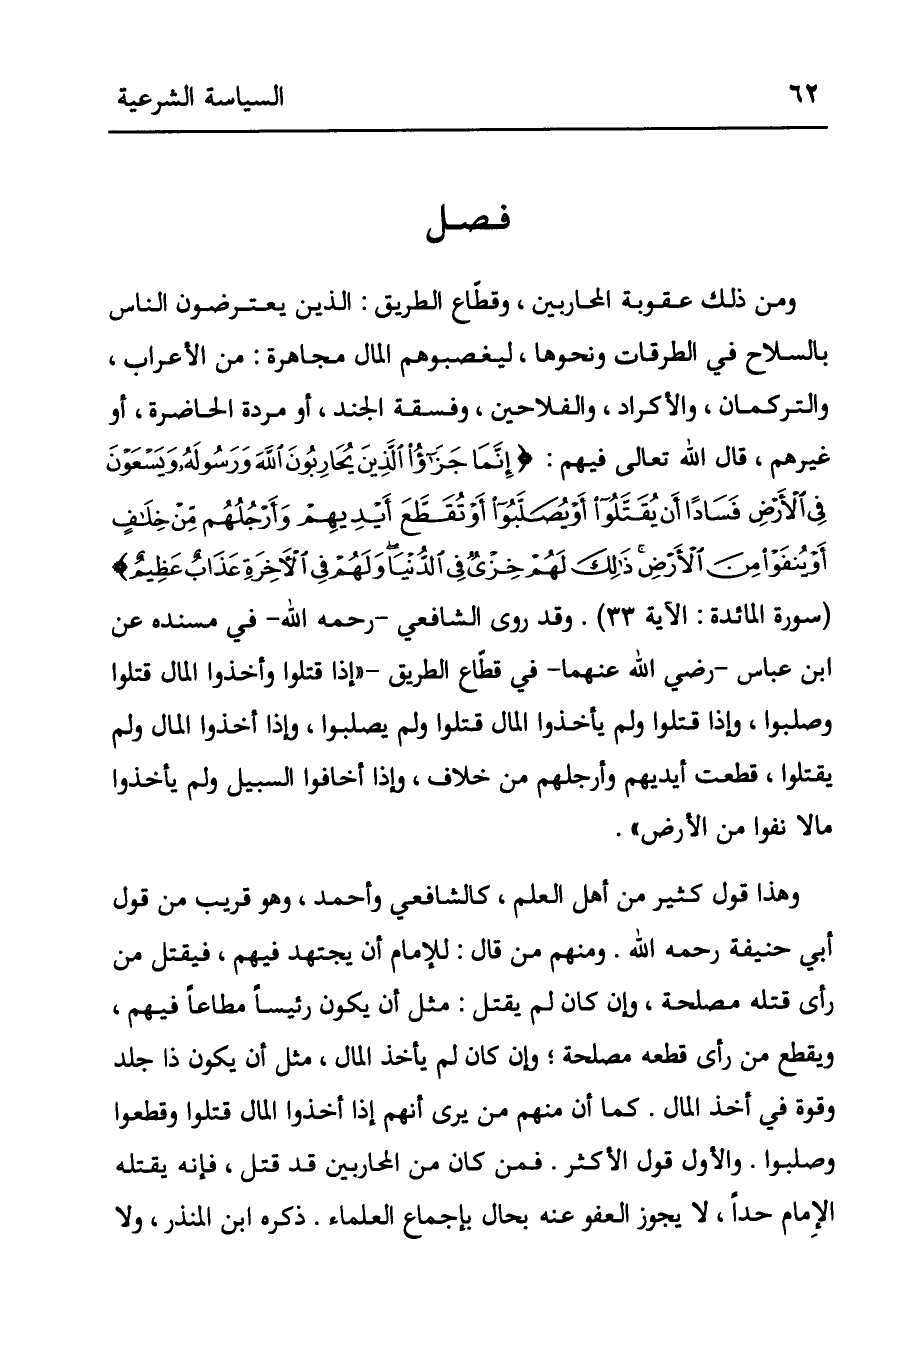 ٦٢ السياسة الشرعية
فـصـل
ومن ذلك عقوبة المحاربين ، وقطّاع الطريق : الذين يعترضون الناس
بالسلاح في الطرقات ونحوها ، ليغصبوهم المال مجاهرة : من الأعراب ،
والتركمان ، والأكراد ، والفلاحين ، وفسقة الجند ، أو مردة الحاضرة ، أو
غيرهم ، قال الله تعالى فيهم : ﴿ إِنَّمَا جَزَٰٓؤُا۟ ٱلَّذِينَ يُحَارِبُونَ ٱللَّهَ وَرَسُولَهُۥ وَيَسْعَوْنَ
فِى ٱلْأَرْضِ فَسَادًا أَن يُقَتَّلُوٓا۟ أَوْ يُصَلَّبُوٓا۟ أَوْ تُقَطَّعَ أَيْدِيهِمْ وَأَرْجُلُهُم مِّنْ خِلَٰفٍ
أَوْ يُنفَوْا۟ مِنَ ٱلْأَرْضِ ۚ ذَٰلِكَ لَهُمْ خِزْىٌ فِى ٱلدُّنْيَا ۖ وَلَهُمْ فِى ٱلْآخِرَةِ عَذَابٌ عَظِيمٌ ﴾
(سورة المائدة : الآية ٣٣) . وقد روى الشافعي -رحمه الله- في مسنده عن
ابن عباس -رضي الله عنهما- في قطّاع الطريق -«إذا قتلوا وأخذوا المال قتلوا
وصلبوا ، وإذا قتلوا ولم يأخذوا المال قتلوا ولم يصلبوا ، وإذا أخذوا المال ولم
يقتلوا ، قطعت أيديهم وأرجلهم من خلاف ، وإذا أخافوا السبيل ولم يأخذوا
مالا نفوا من الأرض» .
وهذا قول كثير من أهل العلم ، كالشافعي وأحمد ، وهو قريب من قول
أبي حنيفة رحمه الله . ومنهم من قال : للإمام أن يجتهد فيهم ، فيقتل من
رأى قتله مصلحة ، وإن كان لم يقتل : مثل أن يكون رئيساً مطاعاً فيهم ،
ويقطع من رأى قطعه مصلحة ؛ وإن كان لم يأخذ المال ، مثل أن يكون ذا جلد
وقوة في أخذ المال . كما أن منهم من يرى أنهم إذا أخذوا المال قتلوا وقطعوا
وصلبوا . والأول قول الأكثر . فمن كان من المحاربين قد قتل ، فإنه يقتله
الإمام حداً ، لا يجوز العفو عنه بحال بإجماع العلماء . ذكره ابن المنذر ، ولا